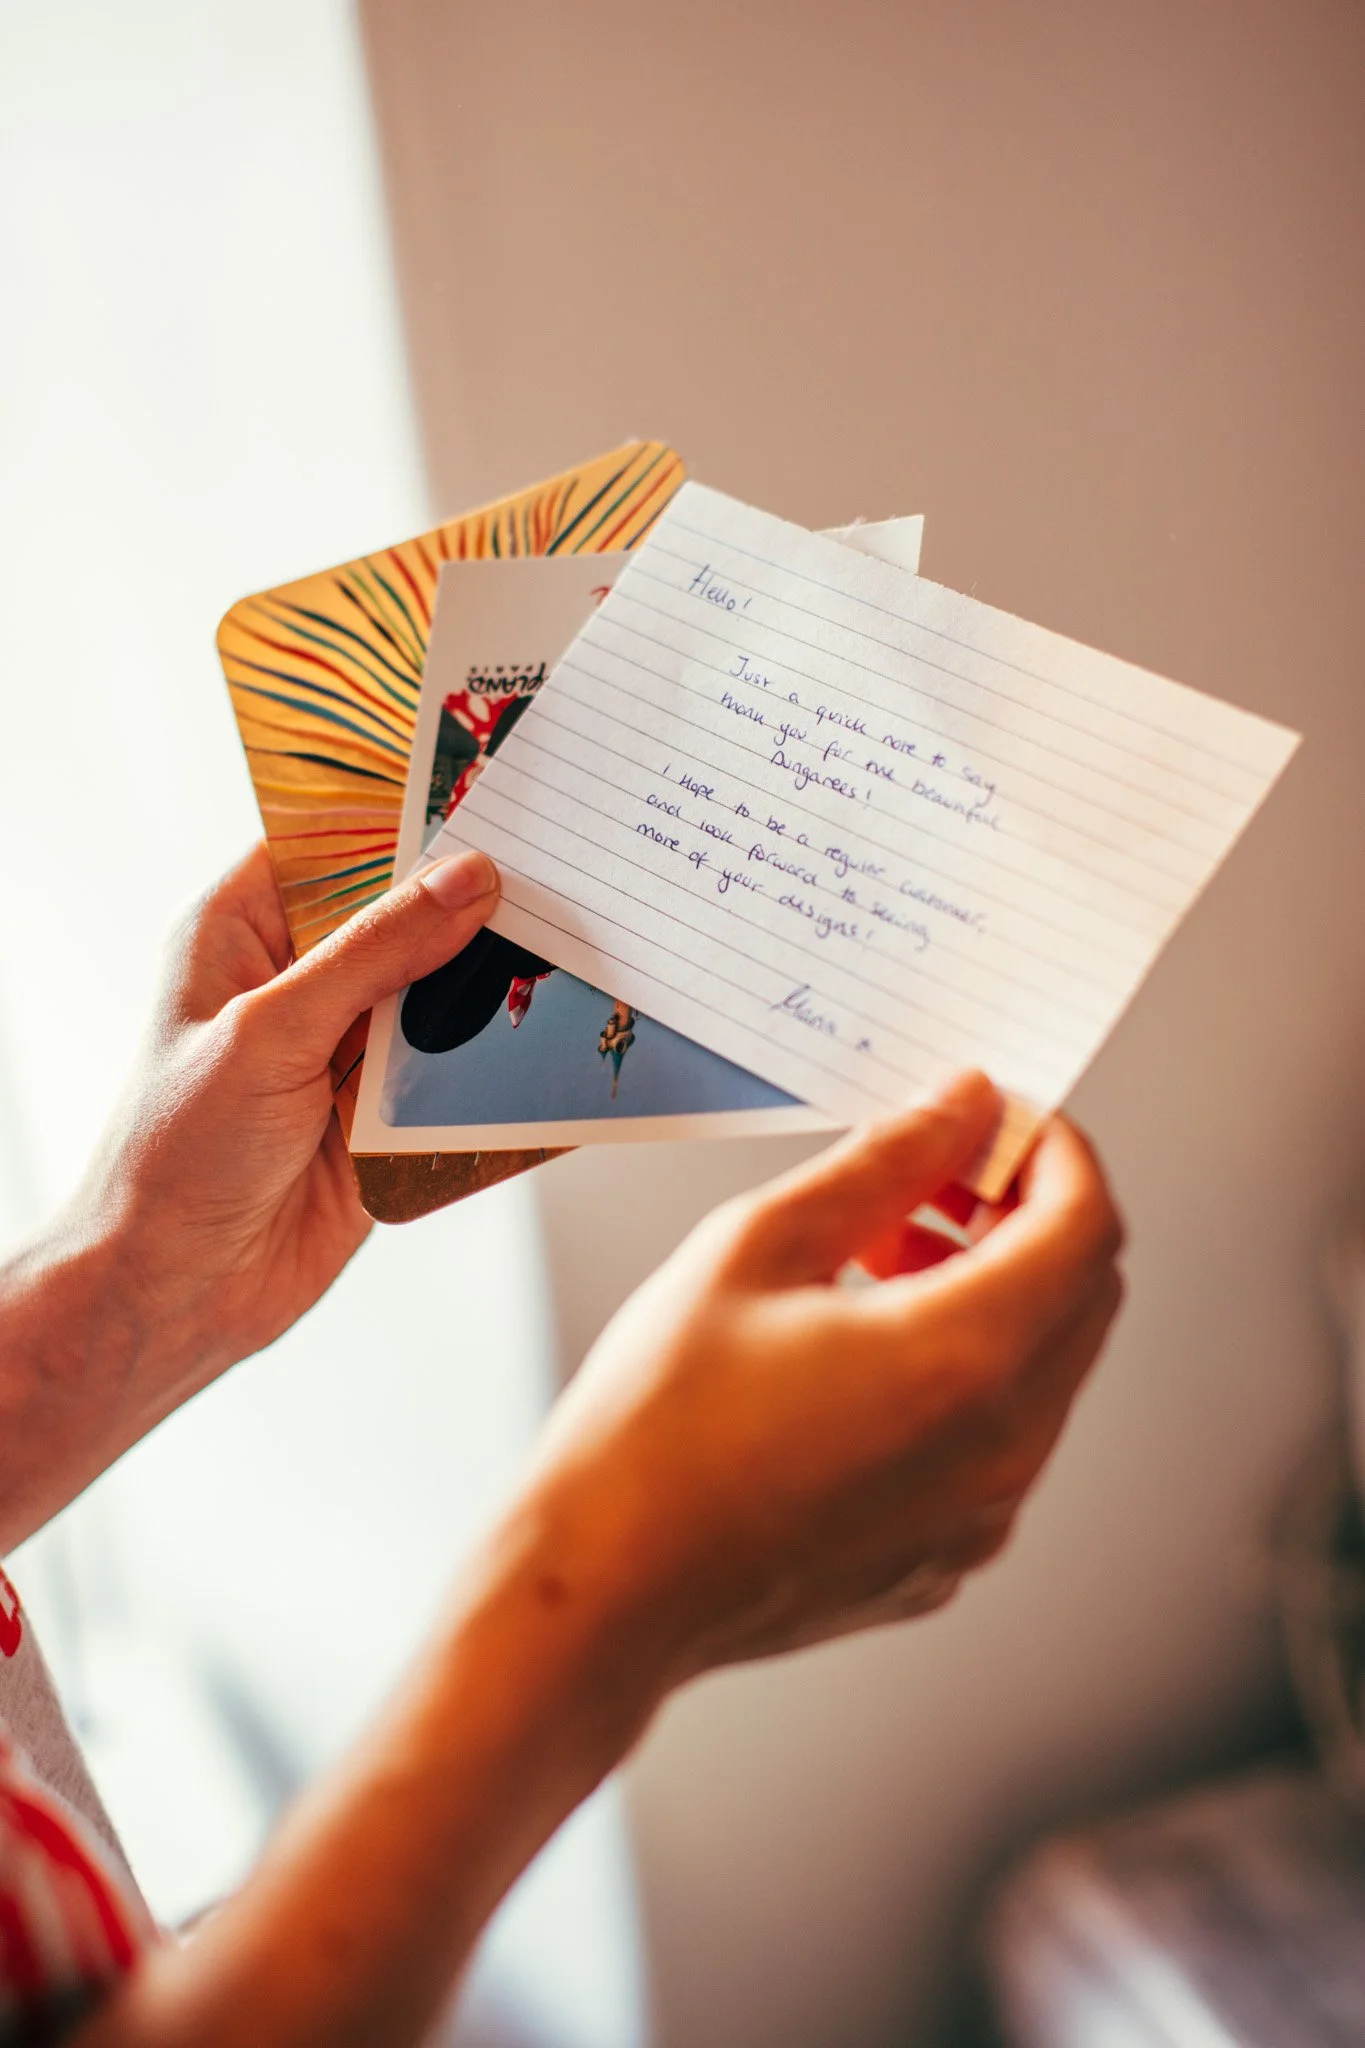 Hello!
Just a quick note to say
thank you for the beautiful
Dungarees!
I Hope to be a regular customer,
and look forward to seeing
more of your designs!
x
PLAND
PARIS